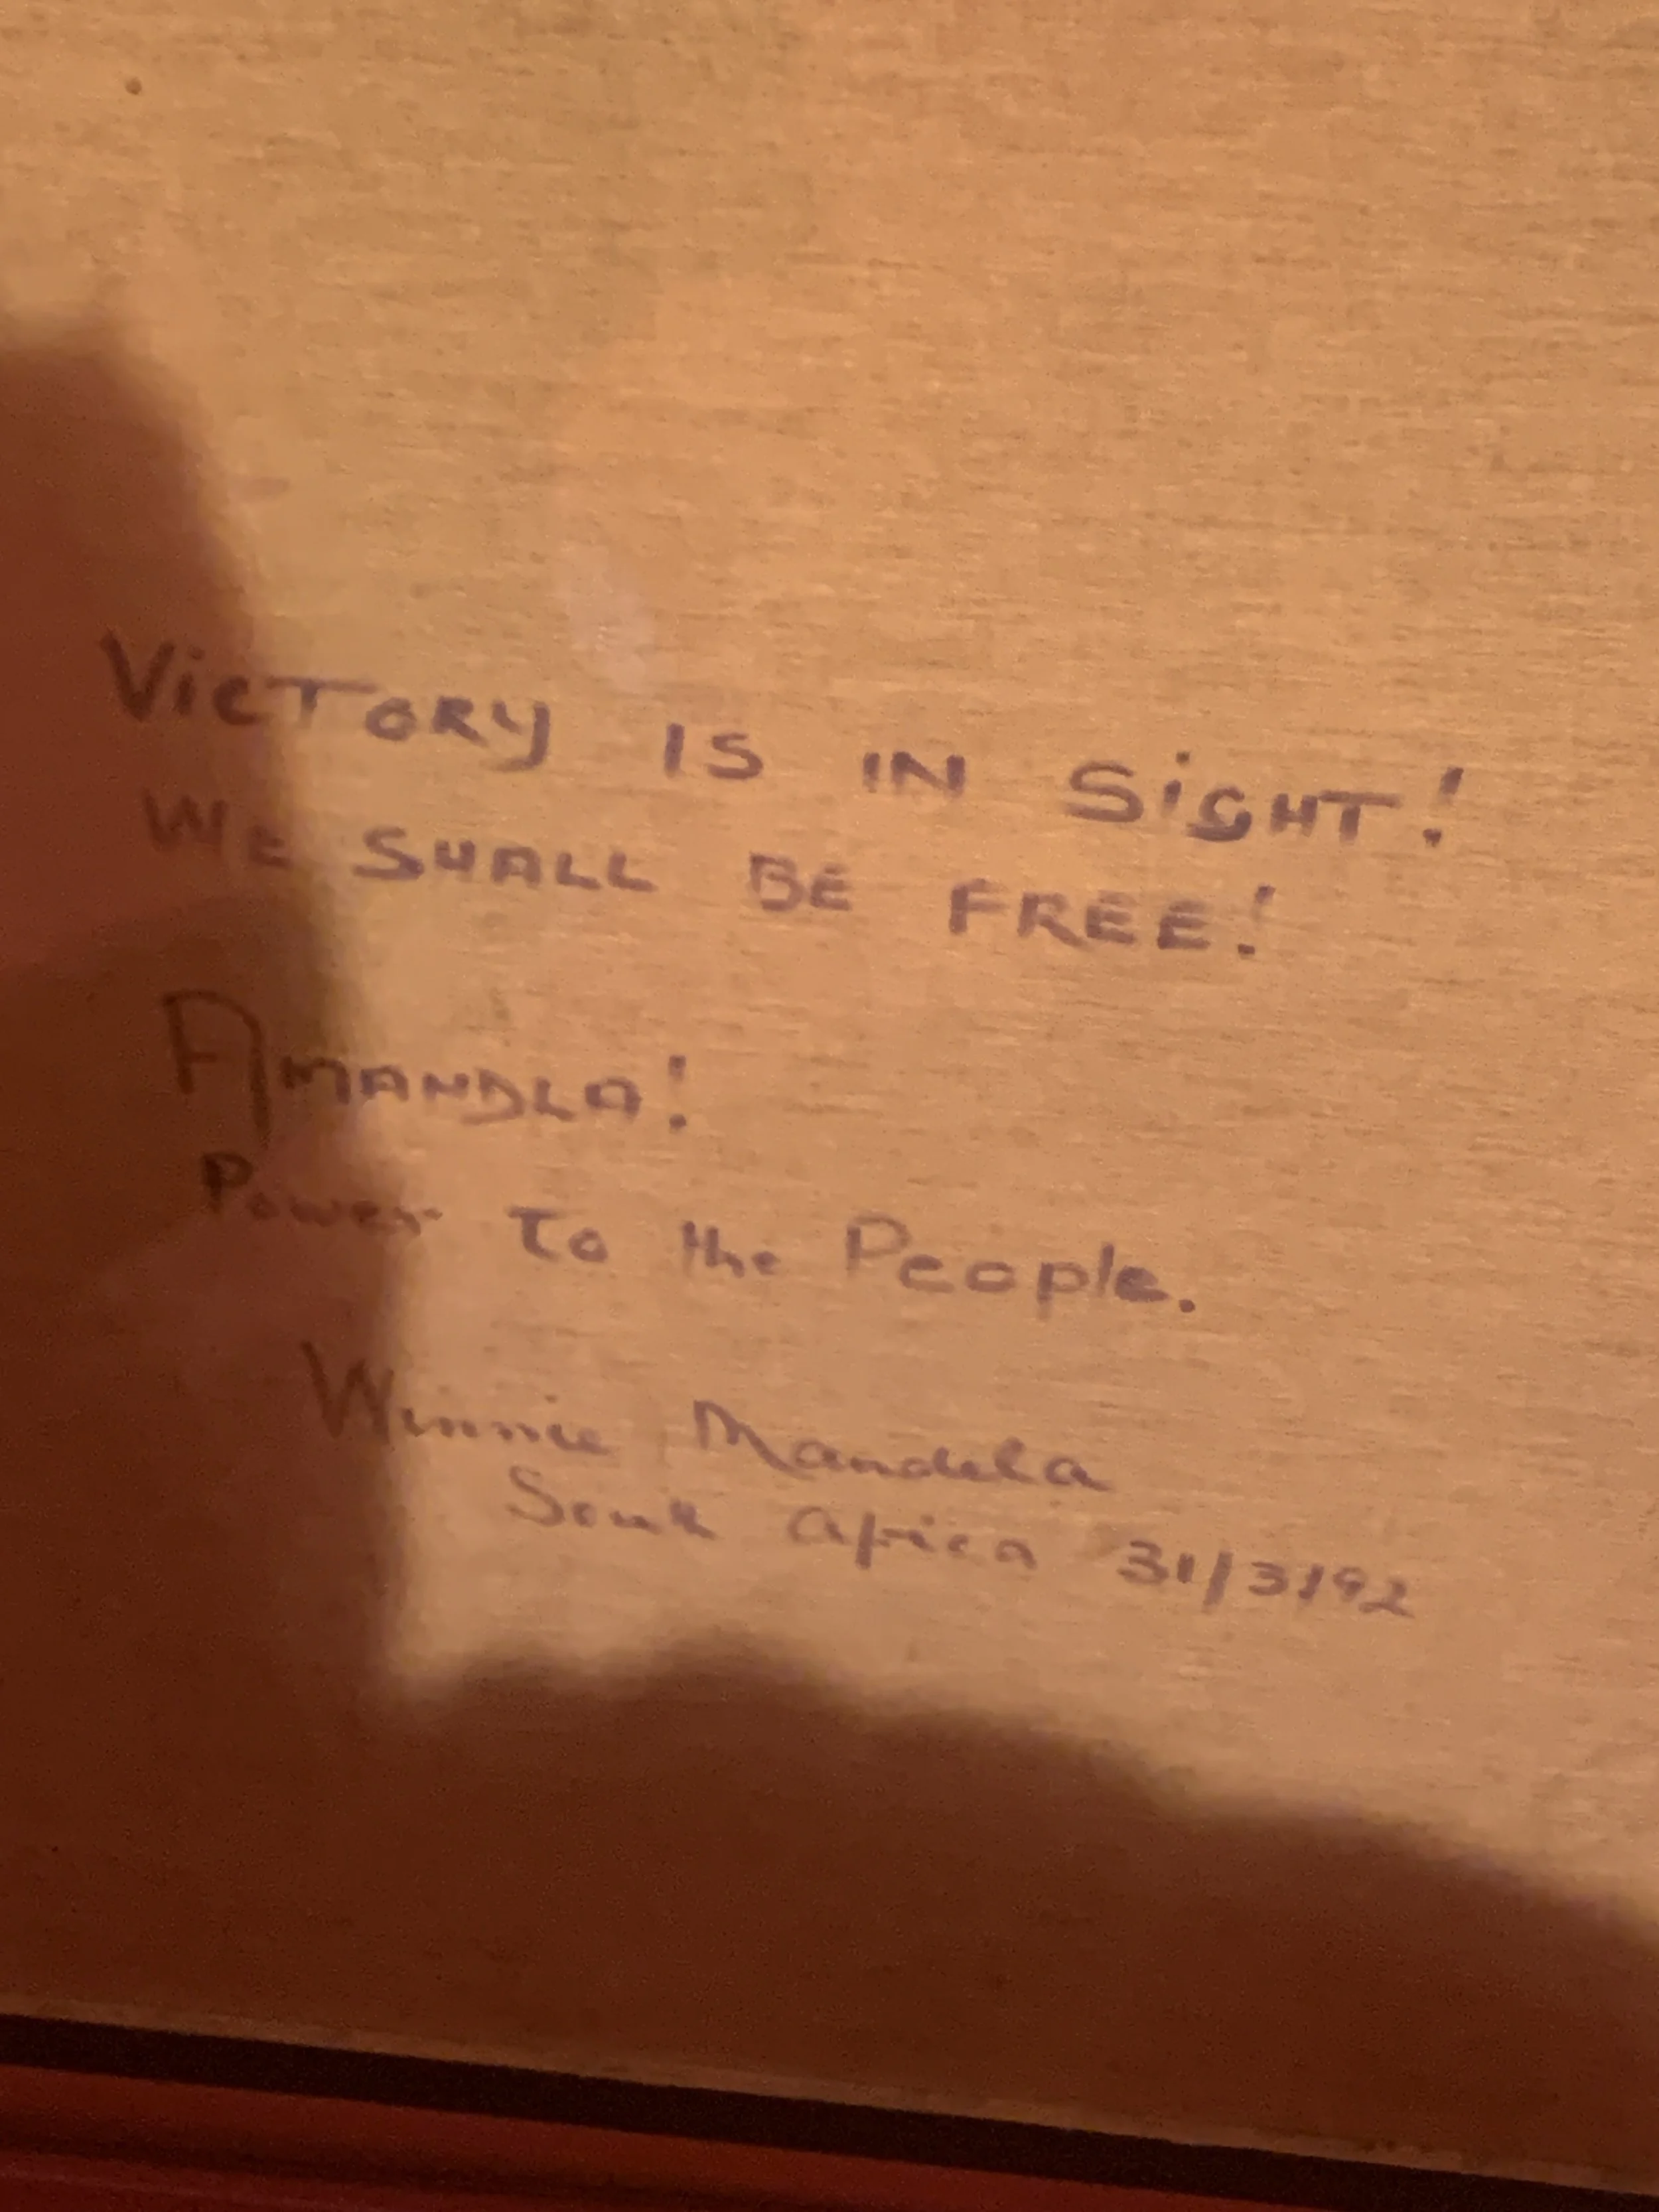 VicTORY IS IN SiGHT!
WE SHALL BE FREE!
AMANDLA!
Power To the People.
Winnie Mandela
South Africa 31/3/92